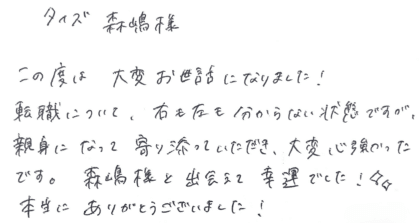 タイズ 森嶋様
この度は 大変お世話になりました!
転職について、右も左も分からない状態ですが、
親身になって寄り添っていただき、大変心強かった
です。 森嶋様と出会えて幸運でした!☆☆
本当に ありがとうございました!